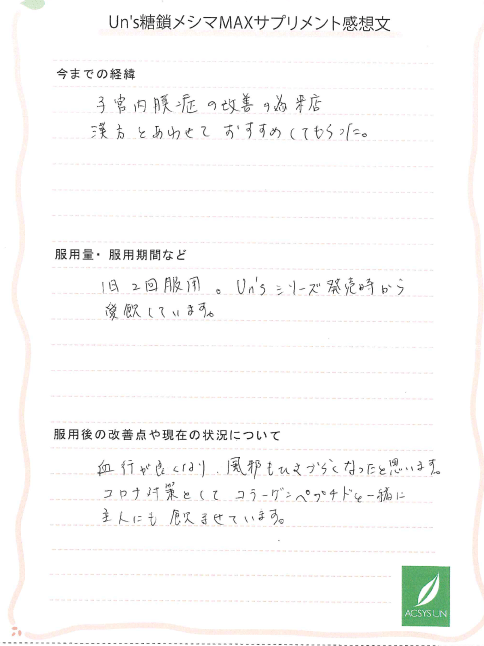 Un's糖鎖メシマMAXサプリメント感想文
今までの経緯
子宮内膜症の改善の為来店
漢方とあわせておすすめしてもらった。
服用量・服用期間など
1日2回服用。Un'sシリーズ発売時から
愛飲しています。
服用後の改善点や現在の状況について
血行が良くなり、風邪もひきづらくなったと思います。
コロナ対策としてコラーゲンペプチドを一緒に
主人にも飲ませています。
ACSYS UN